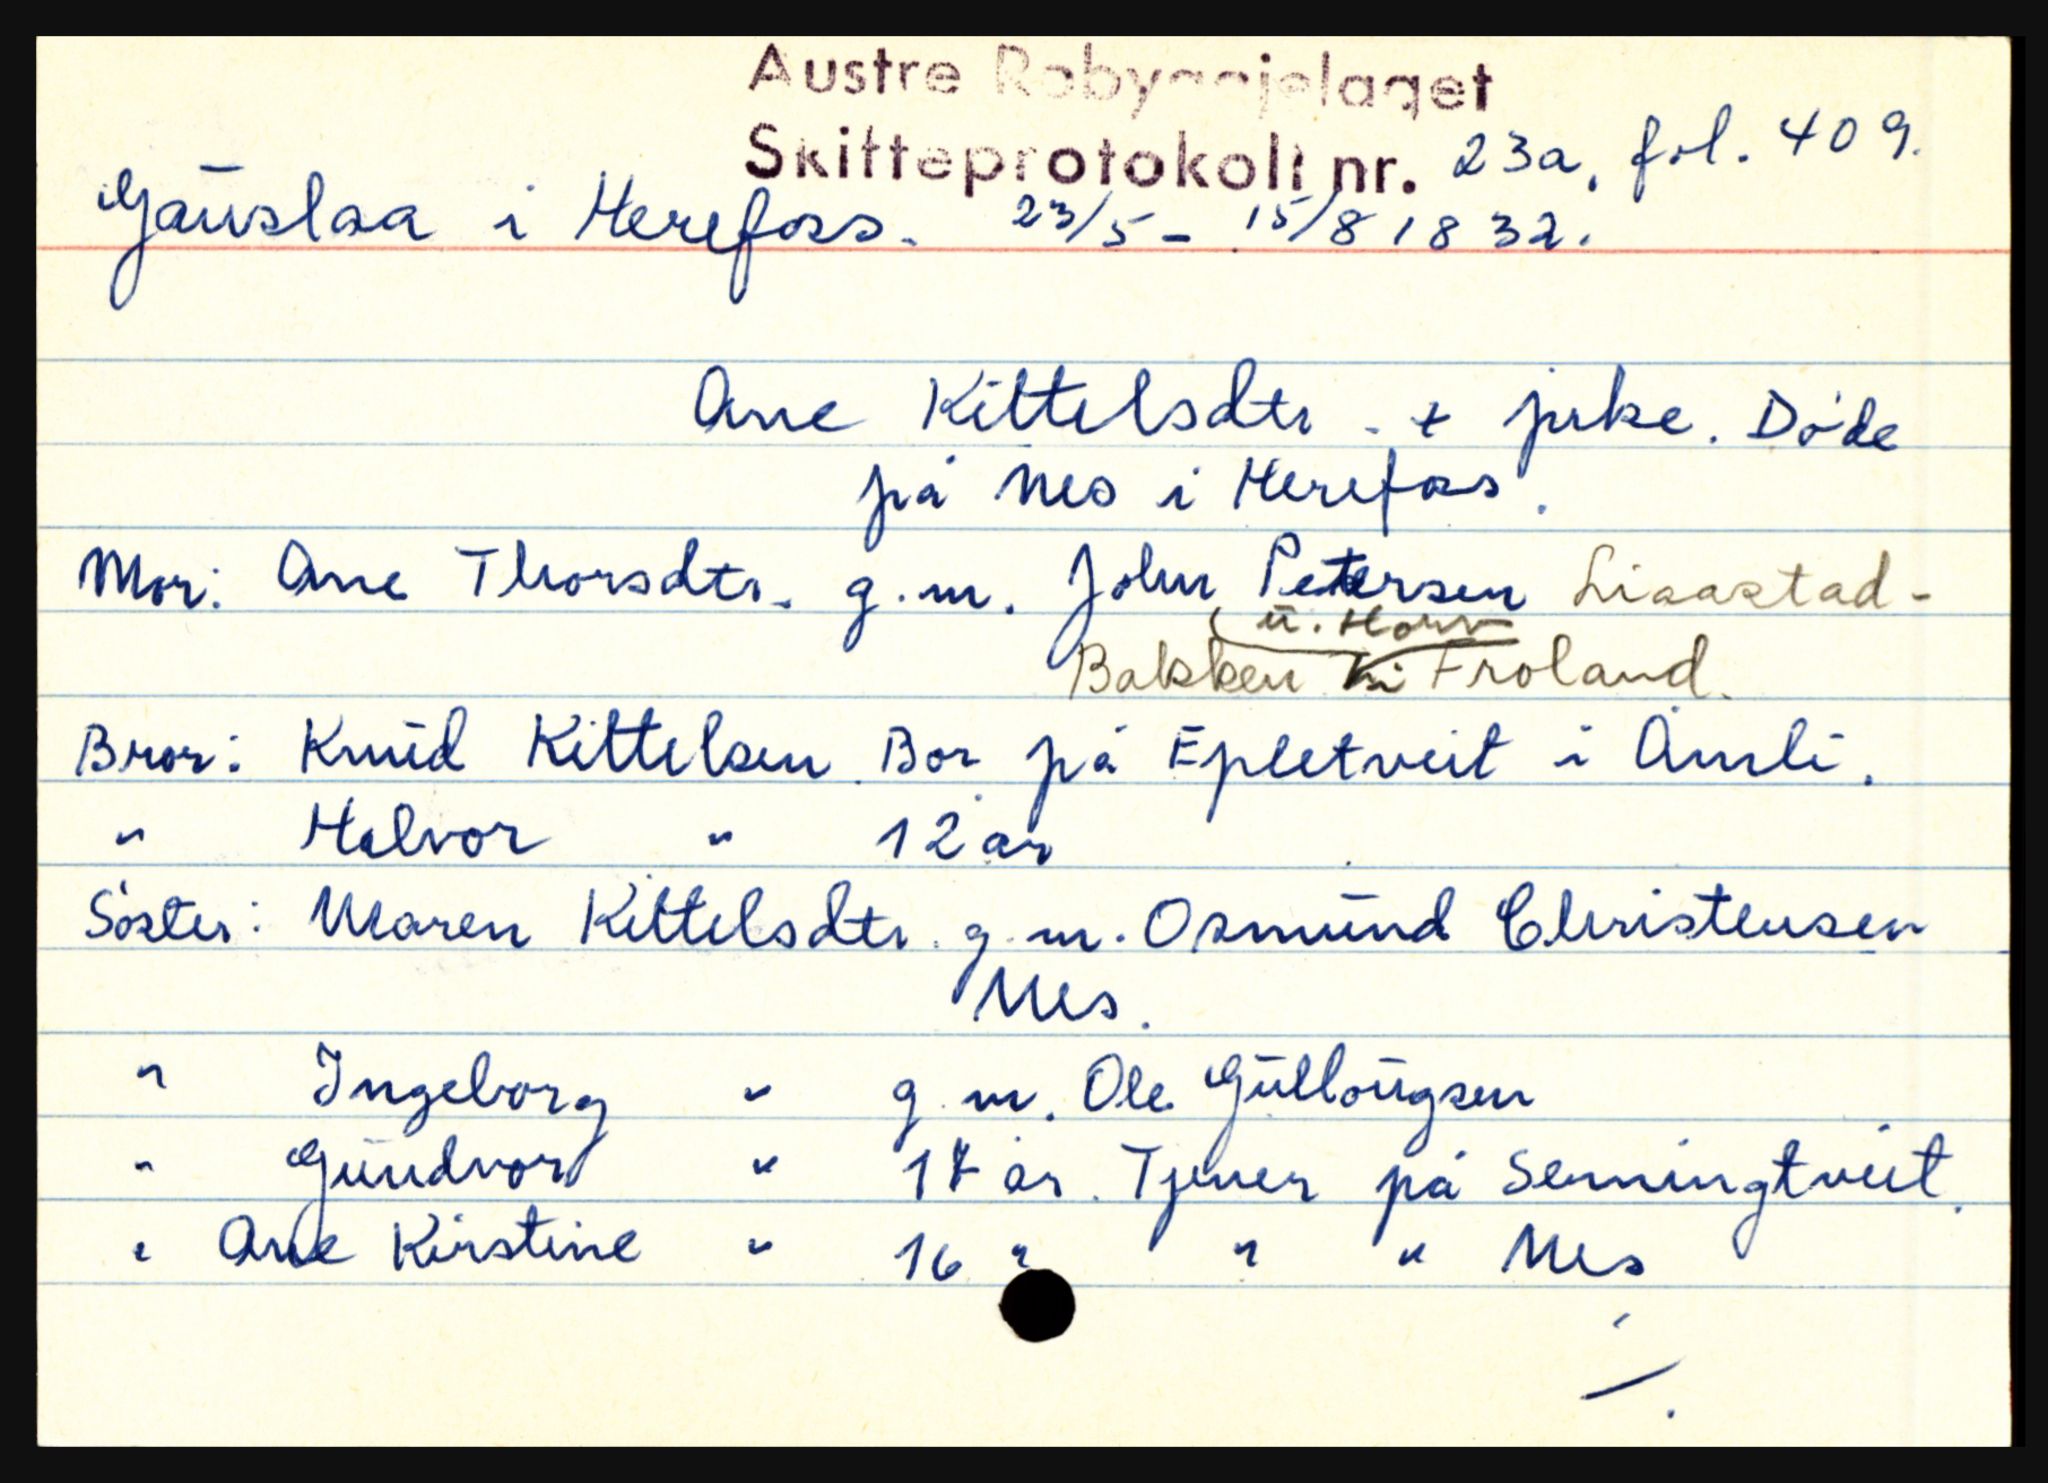 Austre Robyggjelaget
Skifteprotokoll nr. 23a, fol. 409.
Gauslaa i Herefoss. 23/5 - 15/8 1832.
Ane Kittelsdtr. + pike. Døde
på Nes i Herefoss.
Mor: Ane Thorsdtr. g.m. John Petersen Lisastad-
(u. Horv
Bakken i Froland.
Bror: Knud Kittelsen. Bor på Epletveit i Åmli.
" Halvor " 12 år
Søster: Maren Kittelsdtr. g.m. Osmund Christensen
Nes.
" Ingeborg " g.m. Ole Gullougsen
" Gundvor " år. Tjener på Semingtveit.
" Ane Kirstine " 16 " " " Nes